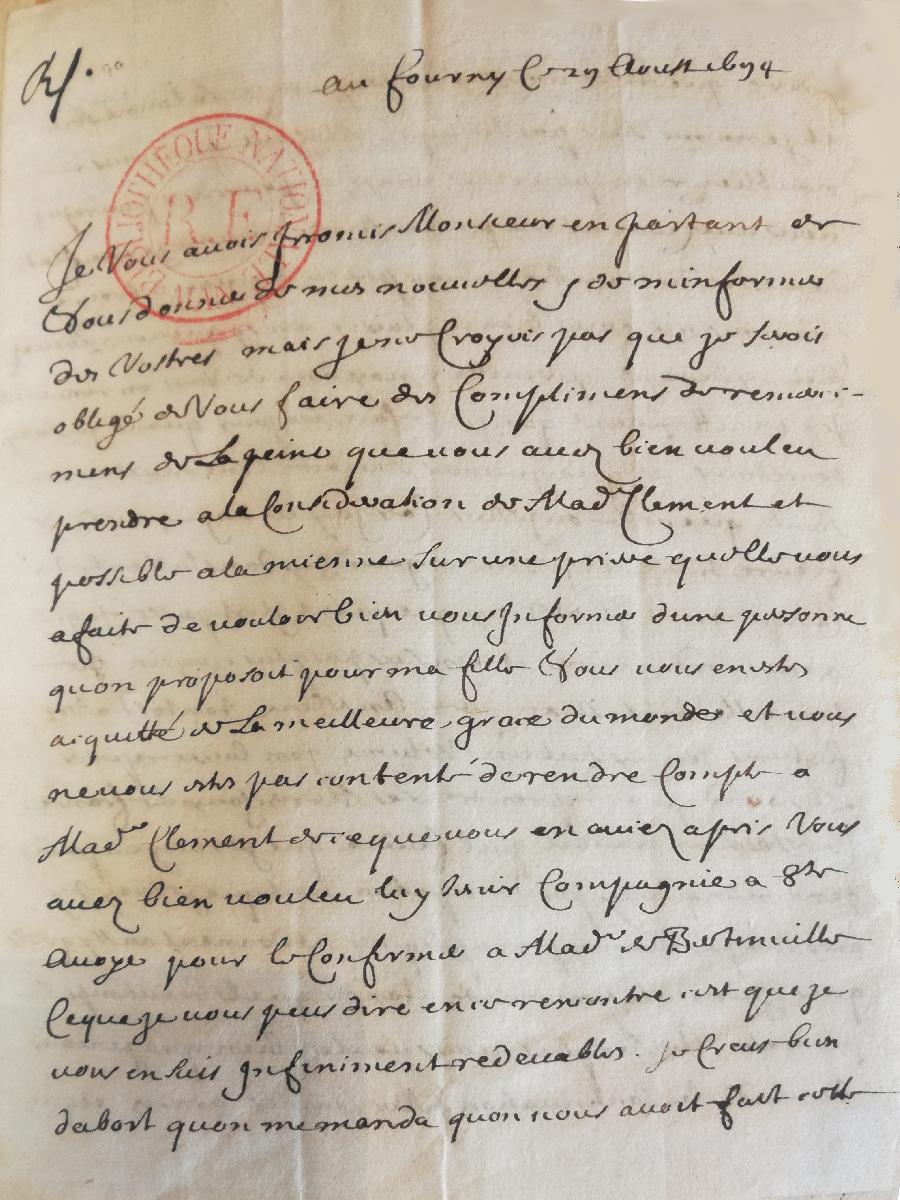 R/.
au fourny Ce 29 Aoust 1694
BIBLIOTHEQUE NATIONALE
R.F.
Je Vous avois promis Monsieur en partant de
Vous donner de mes nouvelles, & de minformer
des Vostres mais je ne Croyois pas que je serois
obligé de Vous faire des Complimens de remerci-
mens de La peine que vous avez bien vouleu
prendre a la Consideration de Made Clement et
possible a la mienne sur une priere quelle vous
a faite de vouloir bien vous Informer dune personne
quon proposoit pour ma fille Vous vous en estes
acquitté de La meilleure grace du monde et vous
ne vous estes pas contenté de rendre Compte a
Made Clement de ce que vous en aviez apris Vous
avez bien vouleu luy tenir Compagnie a Ste
Avoye pour le Confirmer a Made de
Ceque je vous peus dire en ce rencontre c'est que je
vous en suis Infiniment redevables. Je Creus bien
dabort quon me manda quon vous avoit fait cette